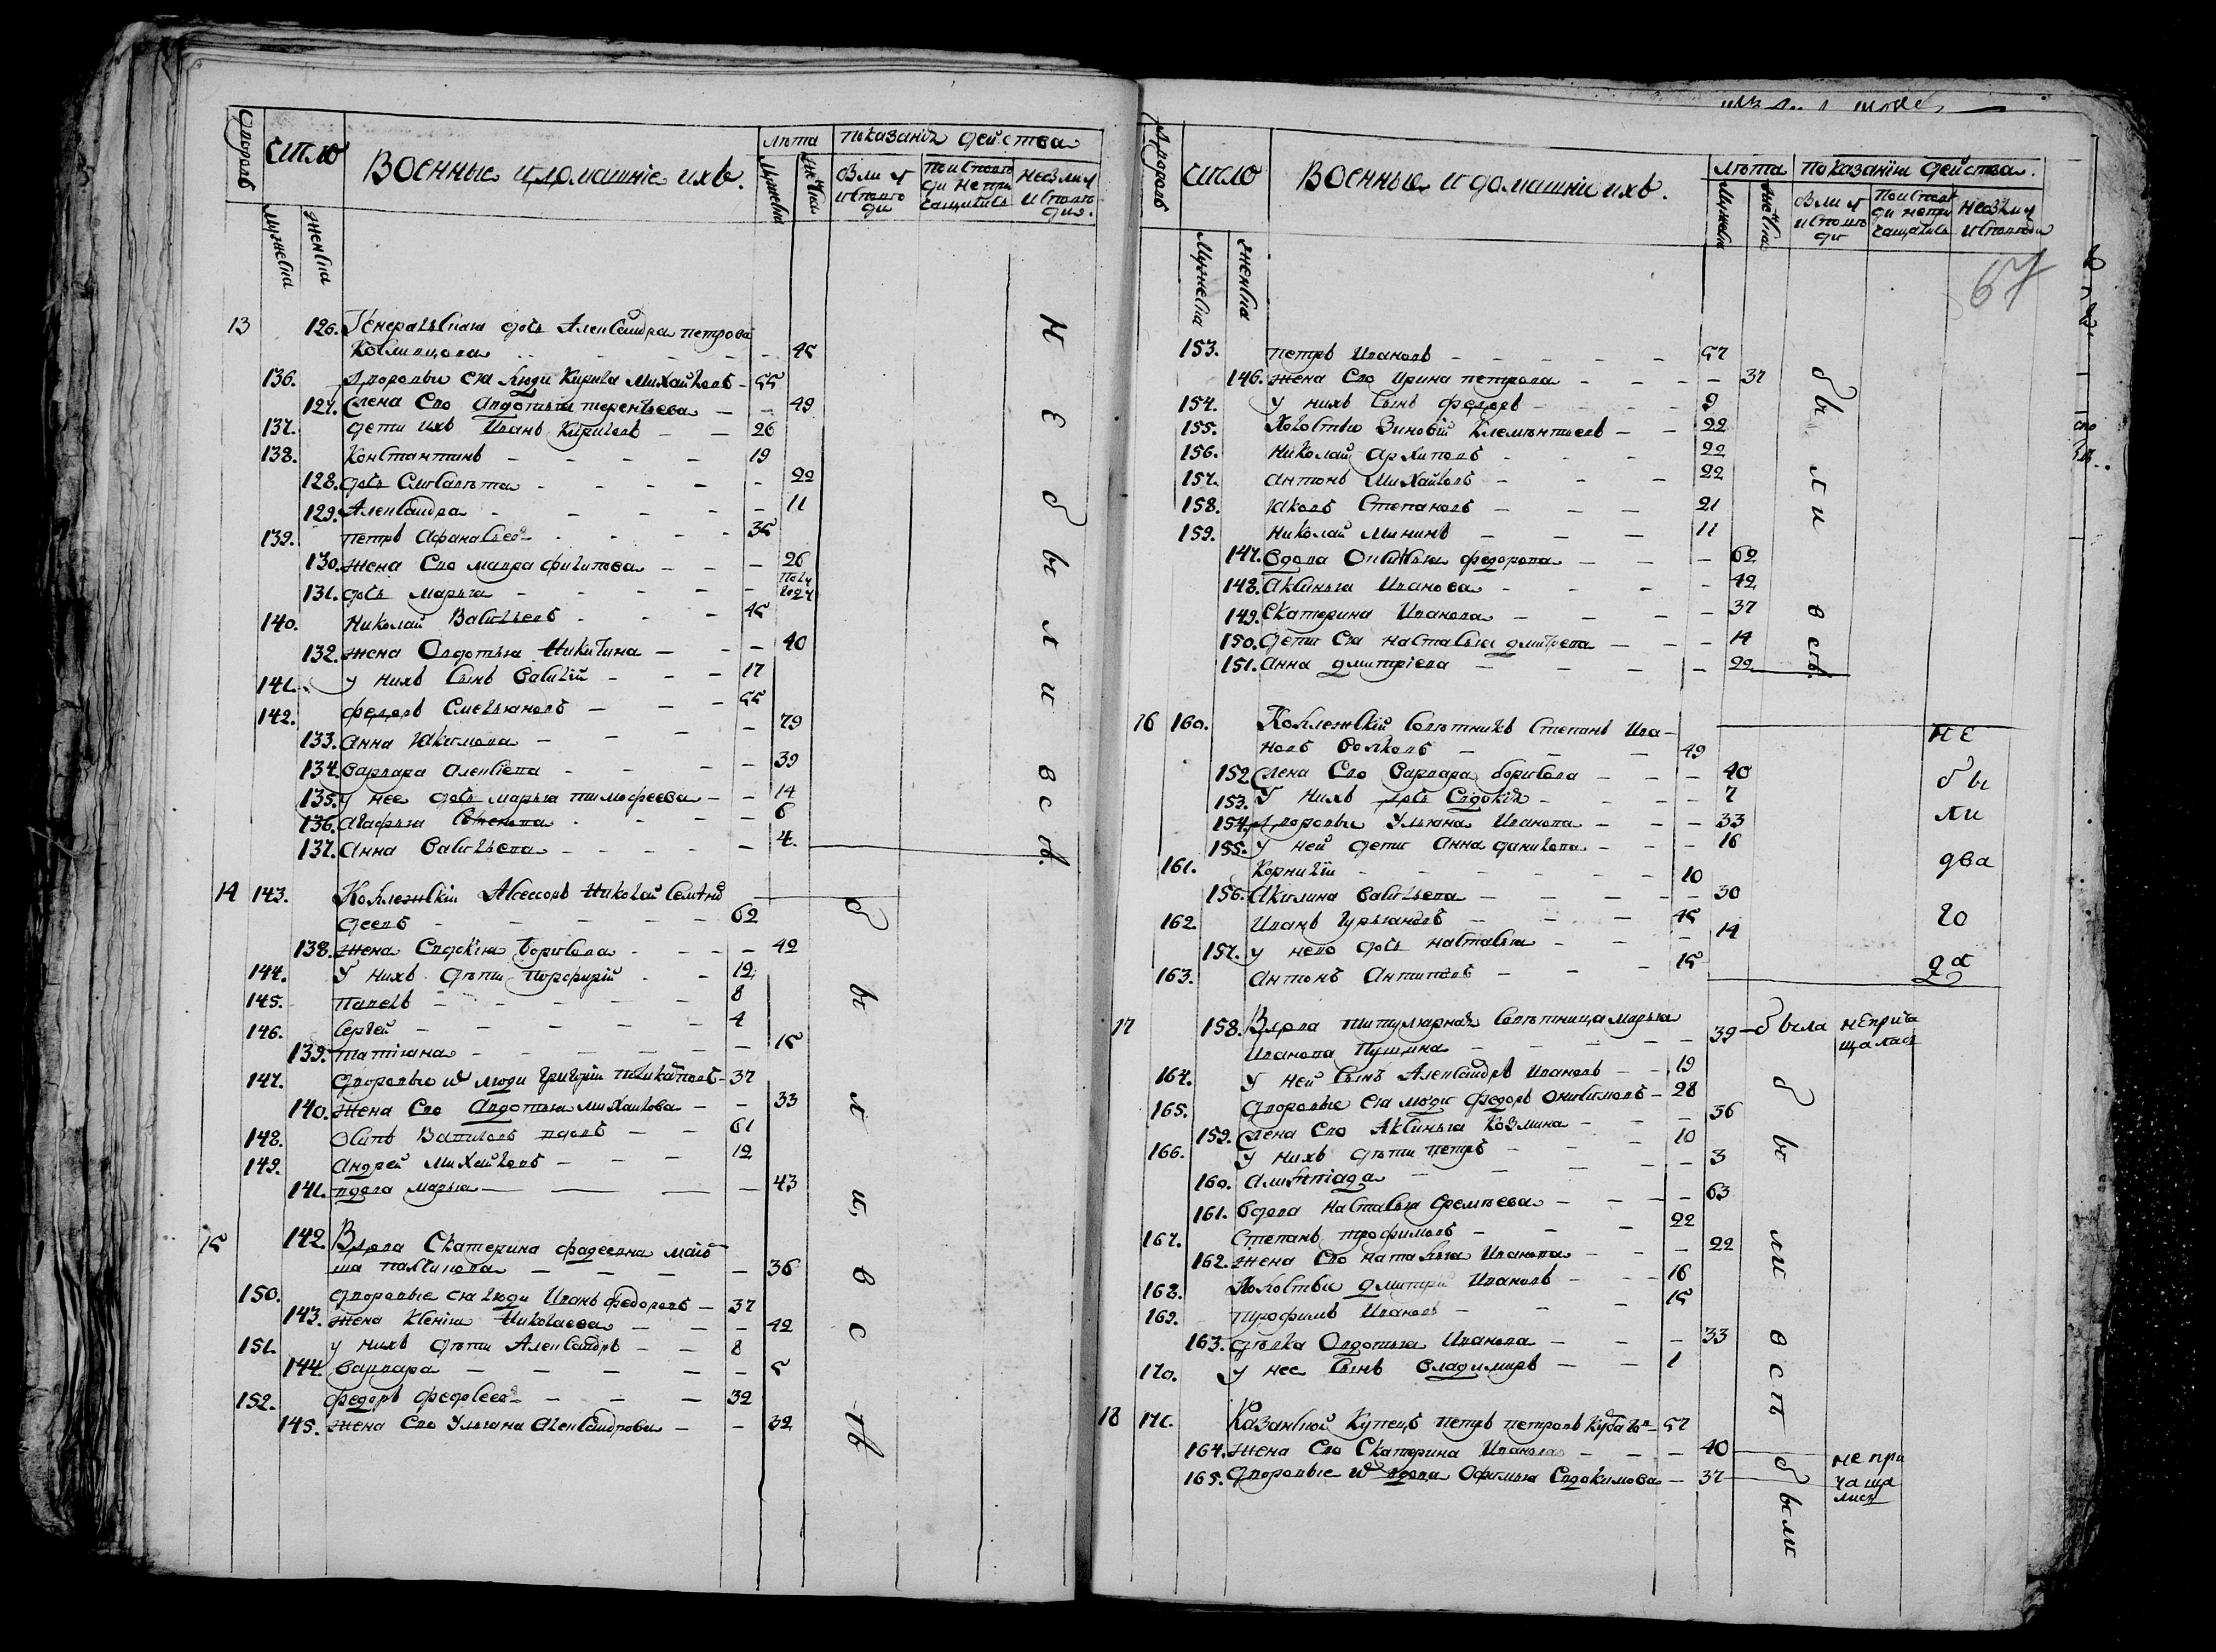 Число
Военные и домашніе ихъ.
Лѣта
Показаніи действа
Дворовъ
Мужеска
Женска
Мужеска
Были у исповеди
По исповеди не причащались
Не были у исповеди
13 126. Генеральская дочь Александра петрова
45
136. Дворовые ея люди Кирила Михайловъ - 55
127. жена Его Авдотья терентьева - 49
137. дети ихъ Иванъ Кириловъ - 26
138. Константинъ - 19
128. дочь Елисавета - 22
129. Александра - 11
139. петръ Афанасьевъ - 35
130. жена Его мавра филипова - 26
131. дочь марья - полу году
140. Николай Васильевъ - 45
132. жена Овдотья Никитина - 40
141. у нихъ сынъ Василій - 17
142. федоръ Емельяновъ - 55
133. Анна Якимова - 79
134. Варвара Алексеева - 39
135. у нее дочь марья тимофеева - 14
136. Агафья - 6
137. Анна Васильева - 4.
не были все
14 143. Коллежскій Асессоръ Николай
62
138. жена Евдокія борисова - 42
144. У нихъ дѣти Порфирій - 12
145. Павелъ - 8
146. Сергей - 4
139. татіяна - 15
147. дворовые ихъ люди Григорій - 37
140. жена Его Авдотья михайлова - 33
148. Осипъ вдовъ - 61
149. Андрей Михайловъ - 12
141. вдова марья - 43
15 142. Вдова Екатерина фадеевна
- 36
150. дворовые ея люди Иванъ федоровъ - 37
143. жена Ксенія Николаева - 42
151. у нихъ дѣти Александръ - 8
144. Варвара - 5
152. федоръ - 32
145. жена Его Ульяна Александрова - 32
были все
Число
Военные и домашніи ихъ.
Лѣта
Показаніи действа.
Дворовъ
Мужеска
Женска
Мужеска
Были у исповеди
По исповеди не причащались
Не были у исповеди
67
153. петръ Ивановъ - 57
146. жена Его Ирина петрова - 37
154. У нихъ сынъ федоръ - 9
155. Холостые Зиновій Клементьевъ - 22
156. Николай Архиповъ - 22
157. Антонъ Михайловъ - 22
158. Яковъ Степановъ - 21
159. Николай Мининъ - 11
147. Вдова федорова - 62
148. Аксинья Иванова - 42
149. Екатерина Иванова - 37
150. дети Ея настасья дмитрева - 14
151. Анна дмитріева - 22
были всѣ
16 160. Коллежскій Совѣтникъ Степанъ Ива-
новъ Волковъ - 49
152. жена Его Варвара борисова - 40
153. У нихъ дочь Евдокія - 7
154. Дворовые Ульяна Иванова - 33
155. У ней дети Анна данилова - 16
161. Корнилій - 10
156. Акилина Васильева - 30
162. Иванъ - 45
157. у него дочь настасья - 14
163. Антонъ Антиповъ - 15
не были два года
17 158. Вдова титулярная Совѣтница марья
Иванова Пущина - 39 - была неприча
щалась
164. У ней сынъ Александръ Ивановъ - 19
165. дворовые ея люди федоръ Онисимовъ - 28
159. жена Его Аксинья Козмина - 36
166. У нихъ дѣти петръ - 10
160. - 3
161. Вдова настасья Еремѣева - 63
167. Степанъ трофимовъ - 22
162. жена Его наталья Иванова - 22
168. Холостые дмитрій Ивановъ - 16
169. трофимъ Ивановъ - 15
163. дѣвка Овдотья Иванова - 33
170. У нее сынъ Владимиръ - 1
были всѣ
18 171. Казанской Купецъ петръ петровъ - 57
164. жена Его Екатерина Иванова - 40
165. дворовые ихъ вдова Офимья Евдокимова - 37
были не при
чаща
лись